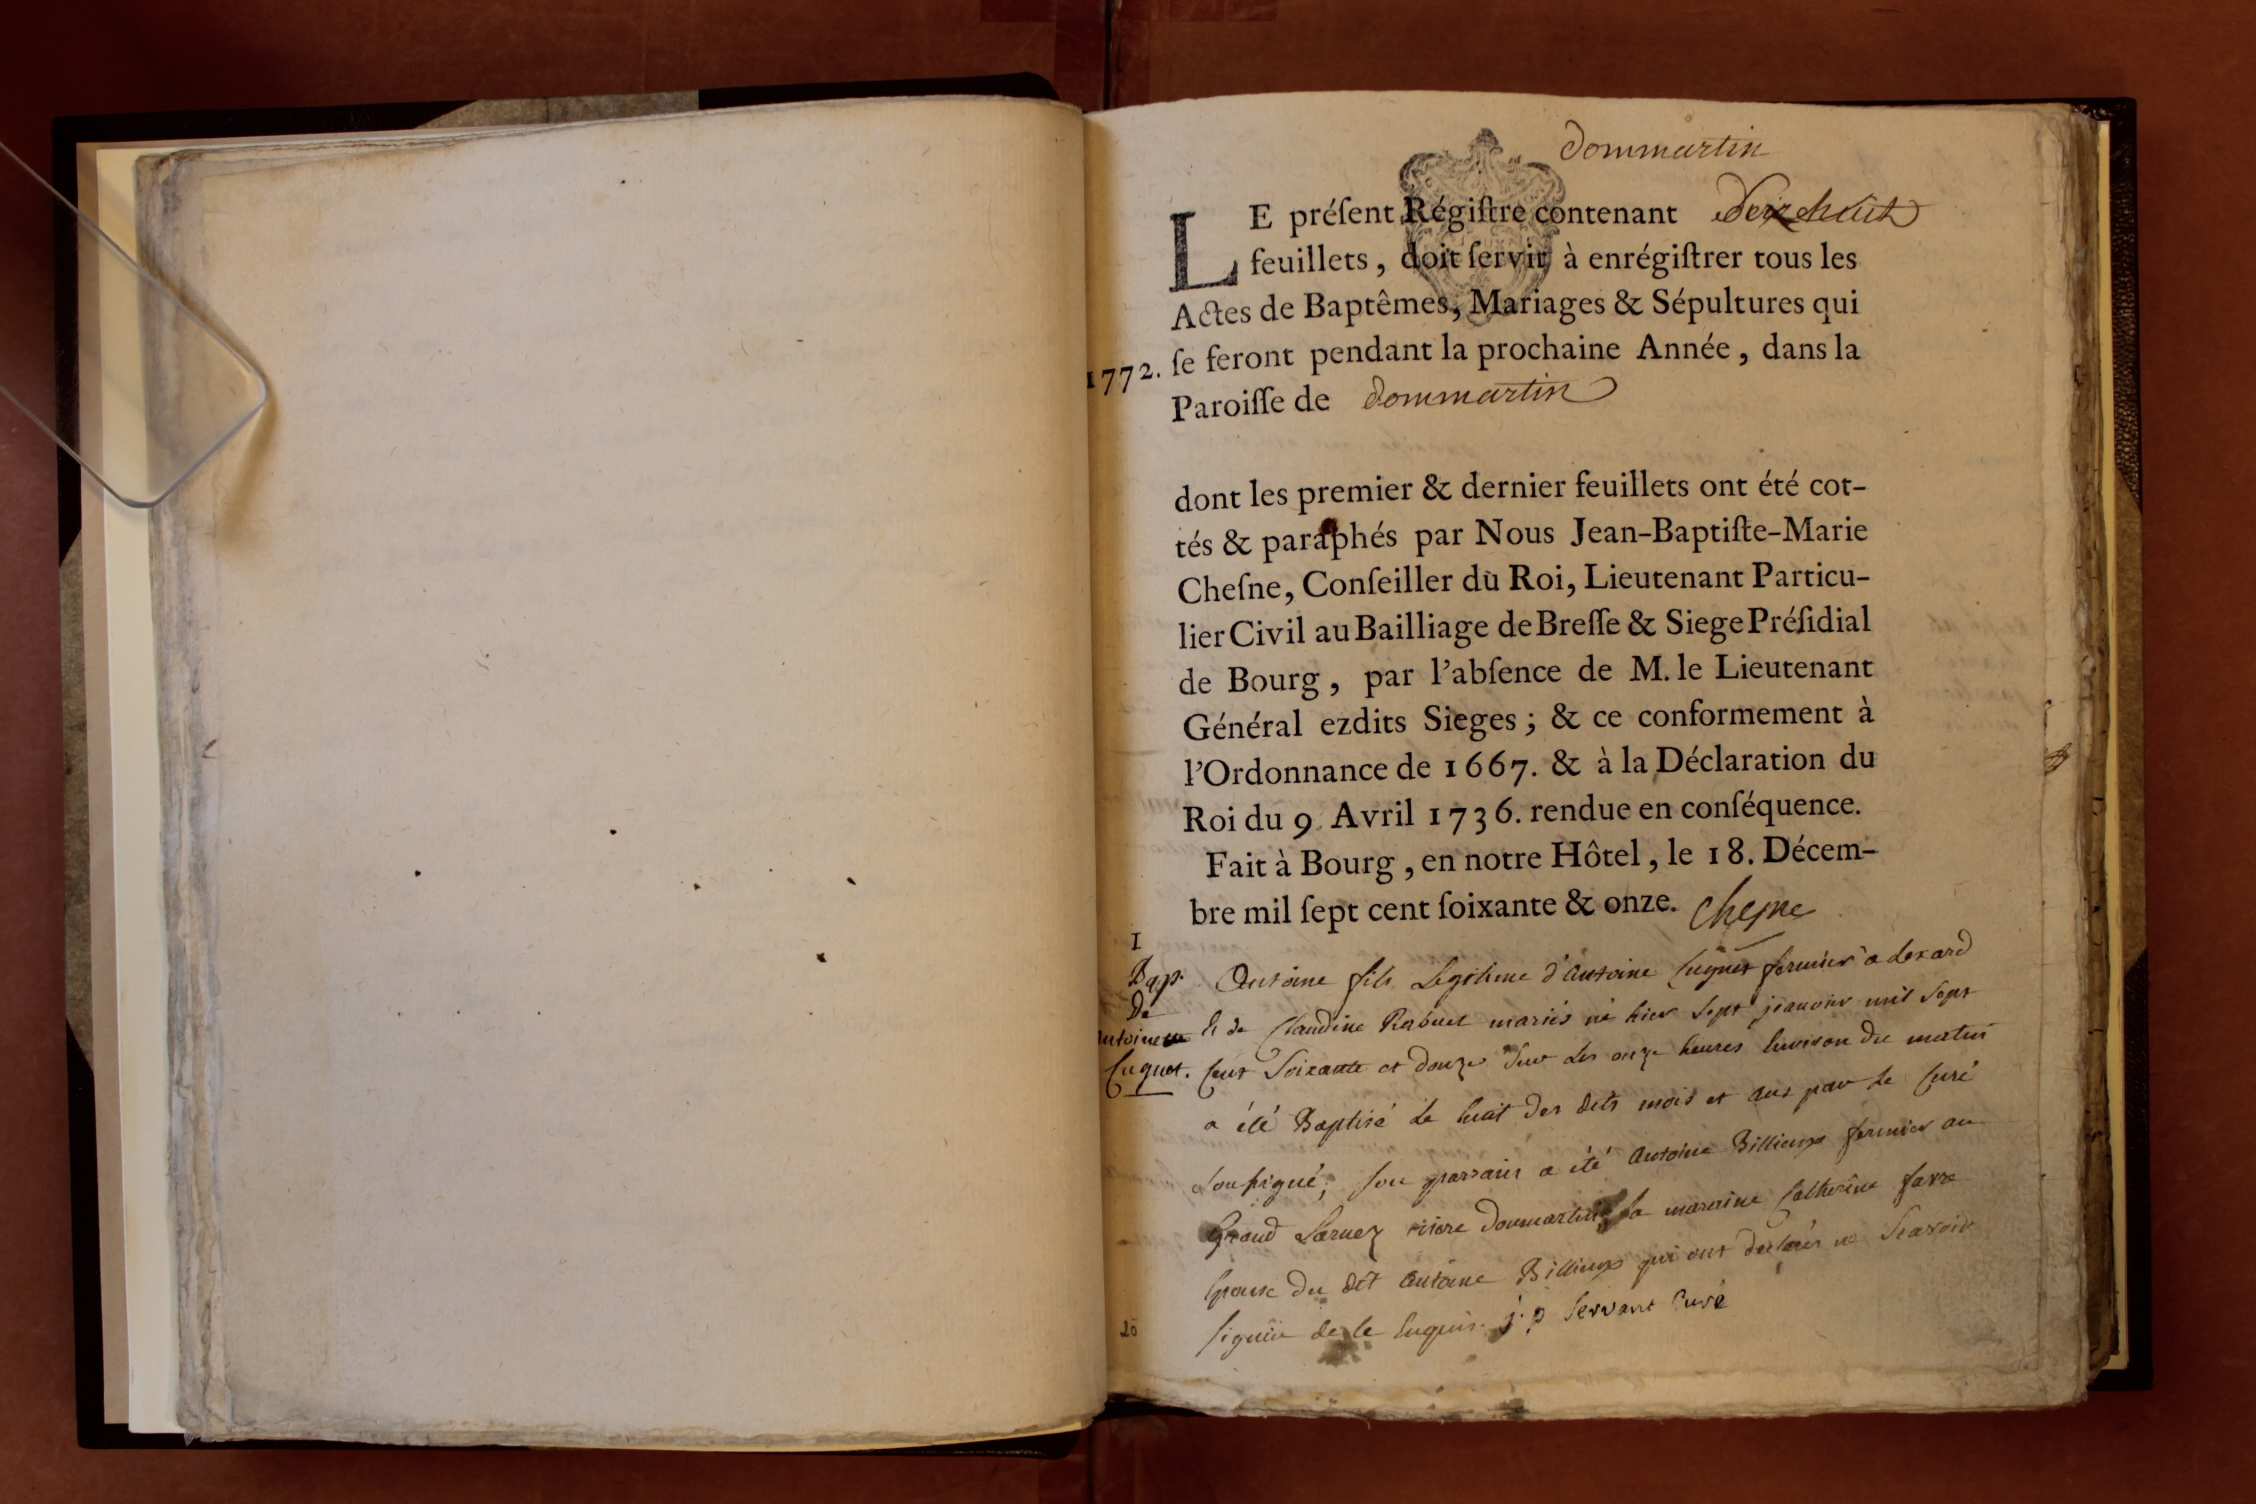 Dommartin
LE préſent Régiſtre contenant dix huit
feuillets, doit ſervir à enrégiſtrer tous les
Actes de Baptêmes, Mariages & Sépultures qui
1772. ſe feront pendant la prochaine Année, dans la
Paroiſſe de Dommartin
dont les premier & dernier feuillets ont été cot-
tés & paraphés par Nous Jean-Baptiſte-Marie
Cheſne, Conſeiller du Roi, Lieutenant Particu-
lier Civil au Bailliage de Breſſe & Siege Préſidial
de Bourg, par l'abſence de M. le Lieutenant
Général ezdits Sieges; & ce conformement à
l'Ordonnance de 1667. & à la Déclaration du
Roi du 9 Avril 1736. rendue en conſéquence.
Fait à Bourg, en notre Hôtel, le 18. Décem-
bre mil ſept cent ſoixante & onze. Chesne
1
Bap.
De
antoine
Cuguet.
Antoine fils Legitime d'Antoine Cuguet fermier a
et de Claudine Rabuel mariés né hier sept janvier mil sept
cent soixante et douze sur les onze heures environ du matin
a été Baptisé le huit des dits mois et ans par le curé
soussigné; son parrain a été Antoine Billioux fermier au
Grand Dommartin La maraine Catherine favre
epouse du dit Antoine Billioux qui ont declarés ne scavoir
signer de ce enquis. j. p servant Curé
20